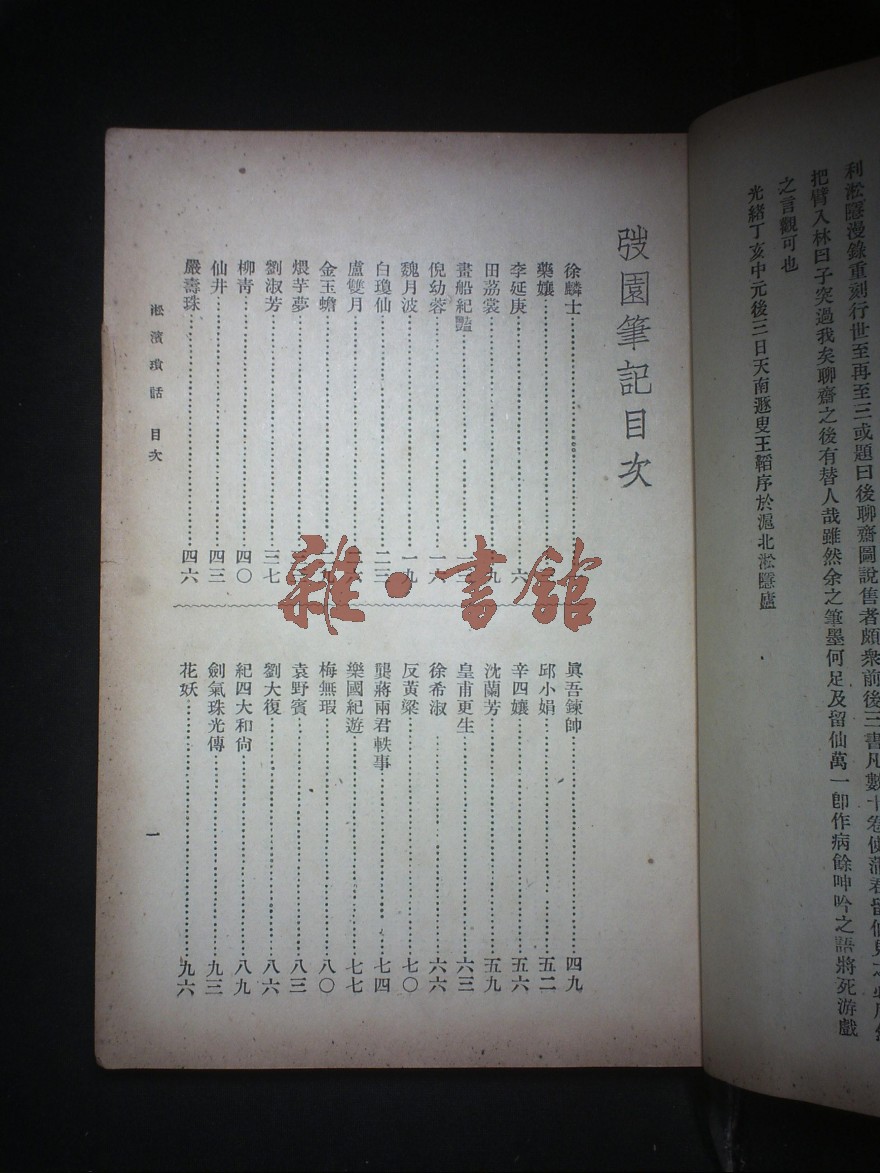 利淞隱漫錄重刻行世至再至三或題曰後聊齋圖說售者頗衆前後三書凡數十卷使蒲君留仙見之必
把臂入林曰子突過我矣聊齋之後有替人哉雖然余之筆墨何足及留仙萬一卽作病餘呻吟之語將死游戲
之言觀可也
光緒丁亥中元後三日天南遯叟王韜序於滬北淞隱廬
弢園筆記目次
徐麟士
藥孃
李延庚 六
田荔裳 九
畫船紀豔
倪幼蓉 一六
魏月波 一九
白瓊仙 二三
盧雙月
金玉蟾
煨芋夢
劉淑芳 三七
柳青 四〇
仙井 四三
嚴壽珠 四六
眞吾鍊師 四九
邱小娟 五二
辛四孃 五六
沈蘭芳 五九
皇甫更生 六三
徐希淑 六六
反黃粱 七〇
龔蔣兩君軼事 七四
樂國紀遊 七七
梅無瑕 八〇
袁野賓 八三
劉大復 八六
紀四大和尙 八九
劍氣珠光傳 九三
花妖 九六
淞濱瑣話 目次
一
雜·書館